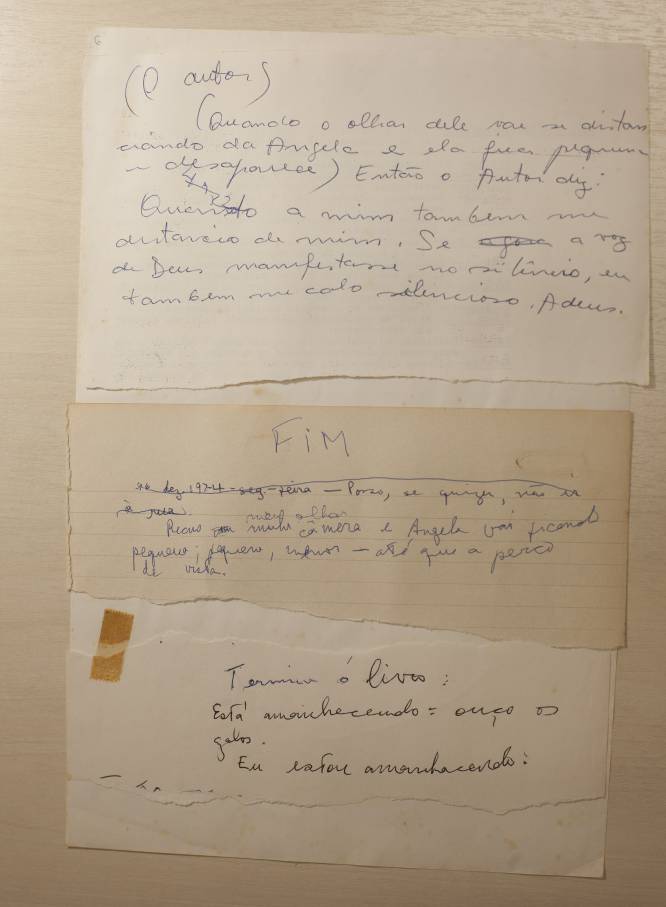 6
(O autor)
(Quando o olhar dele vai se distan
ciando da Angela e ela fica pequena
e desaparece) Então o Autor diz:
Quanto a mim também me
distancio de mim. Se agora a voz
de Deus manifestasse no silêncio, eu
também me calo silencioso. Adeus.
FIM
dez. 1974 - seg.-feira — Posso, se quizer, não ir
à
meu olhar
Recuo minha câmera e Angela vai ficando
pequena, pequena, menor — até que a perco
de vista.
Termina o livro:
Está amanhecendo = ouço os
galos.
Eu estou amanhecendo: